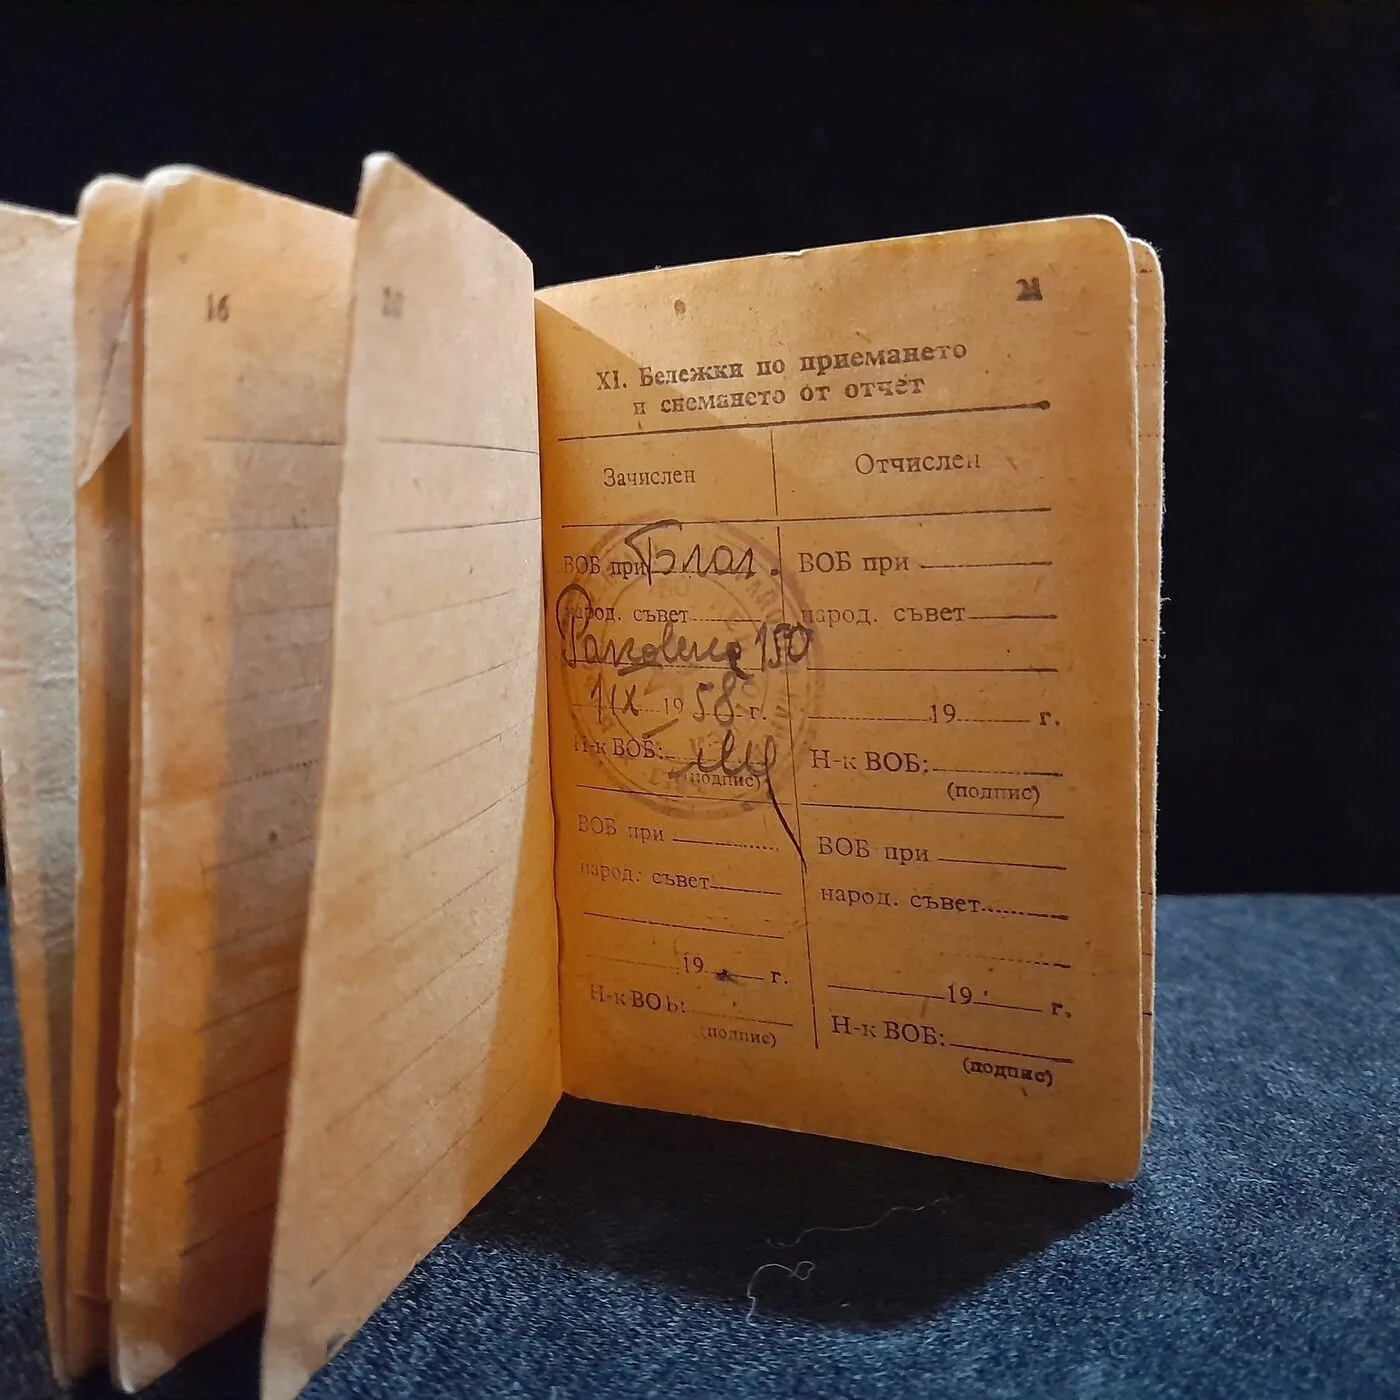 16
21
XI. Бележки по приемането
и снемането от отчет
Зачислен
Отчислен
ВОБ при Благ.
народ. съвет
Раковица 150
1 IX 1958 г.
Н-к ВОБ:
(подпис)
ВОБ при
народ. съвет
19 г.
Н-к ВОБ:
(подпис)
ВОБ при
народ. съвет
19 г.
Н-к ВОБ:
(подпис)
ВОБ при
народ. съвет
19 г.
Н-к ВОБ:
(подпис)